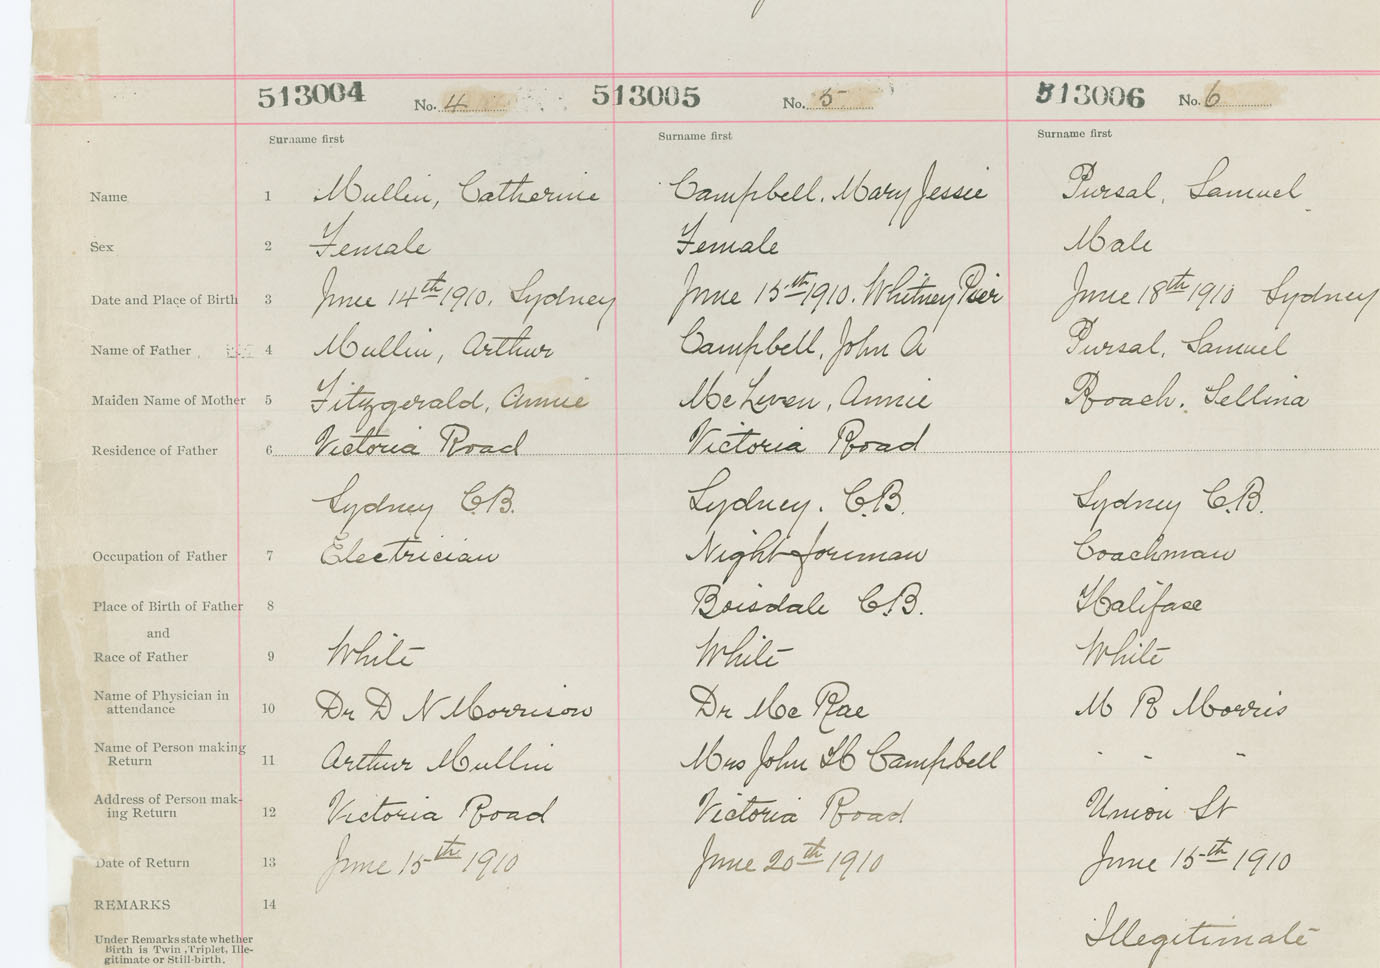 513004 No. 4 513005 No. 5 513006 No. 6
Surname first Surname first Surname first
Name 1 Mullin, Catherine Campbell, Mary Jessie Pursal, Samuel
Sex 2 Female Female Male
Date and Place of Birth 3 June 14th 1910, Sydney June 15th 1910. Whitney Pier June 18th 1910 Sydney
Name of Father 4 Mullin, Arthur Campbell, John A Pursal, Samuel
Maiden Name of Mother 5 Fitzgerald, Annie Annie Roach, Sellina
Residence of Father 6 Victoria Road Victoria Road
Sydney C.B. Sydney. C.B. Sydney C.B.
Occupation of Father 7 Electrician Night foreman Coachman
Place of Birth of Father 8 Boisdale C.B. Halifax
and
Race of Father 9 White White White
Name of Physician in
attendance 10 Dr D N Morrison Dr Mc Rae M R Morris
Name of Person making
Return 11 Arthur Mullin Mrs John Campbell " " "
Address of Person mak-
ing Return 12 Victoria Road Victoria Road Union St
Date of Return 13 June 15th 1910 June 20th 1910 June 15th 1910
REMARKS 14
Under Remarks state whether
Birth is Twin, Triplet, Ille-
gitimate or Still-birth.
Illegitimate